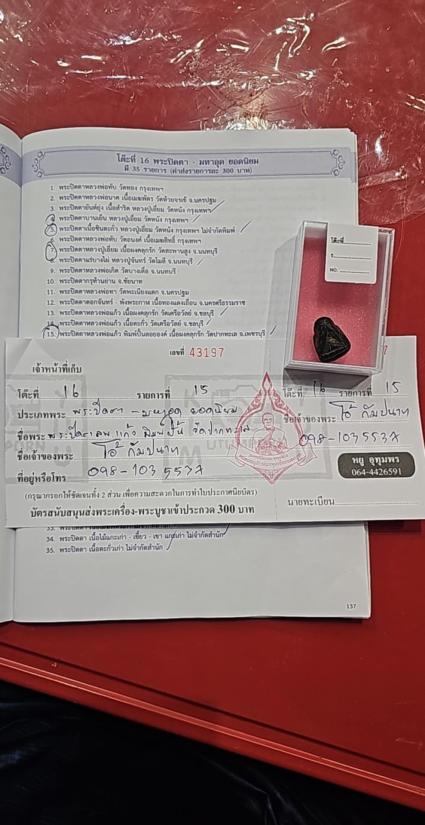 โต๊ะที่ 16 พระปิดตา - มหาอุด ยอดนิยม
มี 35 รายการ (ค่าส่งรายการละ 300 บาท)
1. พระปิดตาหลวงพ่อทับ วัดทอง กรุงเทพฯ
2. พระปิดตาหลวงพ่อนาค เนื้อเมฆพัตร วัดห้วยจรเข้ จ.นครปฐม
3. พระปิดตายันต์ยุ่ง เนื้อสำริด หลวงปู่เอี่ยม วัดหนัง กรุงเทพฯ
4. พระปิดตาบานเย็น หลวงปู่เอี่ยม วัดหนัง กรุงเทพฯ
5. พระปิดตาเนื้อชินตะกั่ว หลวงปู่เอี่ยม วัดหนัง กรุงเทพฯ ไม่จำกัดพิมพ์
6. พระปิดตาหลวงพ่อทับ วัดอนงค์ เนื้อเมฆสิทธิ์ กรุงเทพฯ
7. พระปิดตาหลวงปู่เอี่ยม เนื้อผงคลุกรัก วัดสะพานสูง จ.นนทบุรี
8. พระปิดตาแร่บางไผ่ หลวงปู่จันทร์ วัดโมลี จ.นนทบุรี
9. พระปิดตาหลวงพ่อเกิด วัดบางเดื่อ จ.นนทบุรี
10. พระปิดตากรุท้ายย่าน จ.ชัยนาท
11. พระปิดตาหลวงพ่อทา วัดพะเนียงแตก จ.นครปฐม
12. พระปิดตาดอกจันทร์ - พังพระกาฬ เนื้อทองแดงเถื่อน จ.นครศรีธรรมราช
13. พระปิดตาหลวงพ่อแก้ว เนื้อผงคลุกรัก วัดเครือวัลย์ จ.ชลบุรี
14. พระปิดตาหลวงพ่อแก้ว เนื้อตะกั่ว วัดเครือวัลย์ จ.ชลบุรี
15. พระปิดตาหลวงพ่อแก้ว พิมพ์ปั้นลอยองค์ เนื้อผงคลุกรัก วัดปากทะเล จ.เพชรบุรี
โต๊ะที่
ร.
NO.
เลขที่ 43197
เจ้าหน้าที่เก็บ
โต๊ะที่ 16 รายการที่ 15
โต๊ะที่ 16 รายการที่ 15
ประเภทพระ พระปิดตา - มหาอุด ยอดนิยม
ชื่อเจ้าของพระ โอ๋ กัมปนาท
ชื่อพระ พระปิดตา ลพ แก้ว พิมพ์ปั้น วัดปากทะเล
098-1035537
ชื่อเจ้าของพระ โอ๋ กัมปนาท
ที่อยู่หรือโทร 098-1035537
หยู อุทุมพร
064-4426591
(กรุณากรอกให้ชัดเจนทั้ง 2 ส่วน เพื่อความสะดวกในการทำใบประกาศนียบัตร)
นายทะเบียน
บัตรสนับสนุนส่งพระเครื่อง-พระบูชาเข้าประกวด 300 บาท
34. พระปิดตา เนื้อไม้แกะเก่า - เขี้ยว - เขา แกะเก่า ไม่จำกัดสำนัก
35. พระปิดตา เนื้อตะกั่วเก่า ไม่จำกัดสำนัก
137